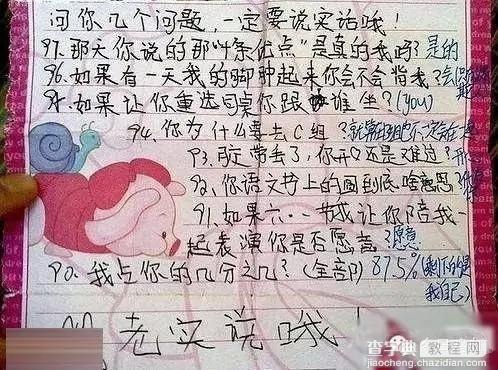 问你几个问题,一定要说实话哦!
97.那天你说的那"十条优点"是真的我吗?是的
96.如果有一天我的脚肿起来你会不会背我?会
95.如果让你重选同桌你跟谁坐?(you)
94.你为什么要去C组?
93.胶带丢了,你开心还是难过?
92.你语文书上的圈到底啥意思?
91.如果六·一节我让你陪我一
起表演你是否愿意?愿意
90.我占你的几分之几?(全部)87.5%(剩下的是
我自己)
老实说哦!
查字典 教程网
jiaocheng.chazidian.com